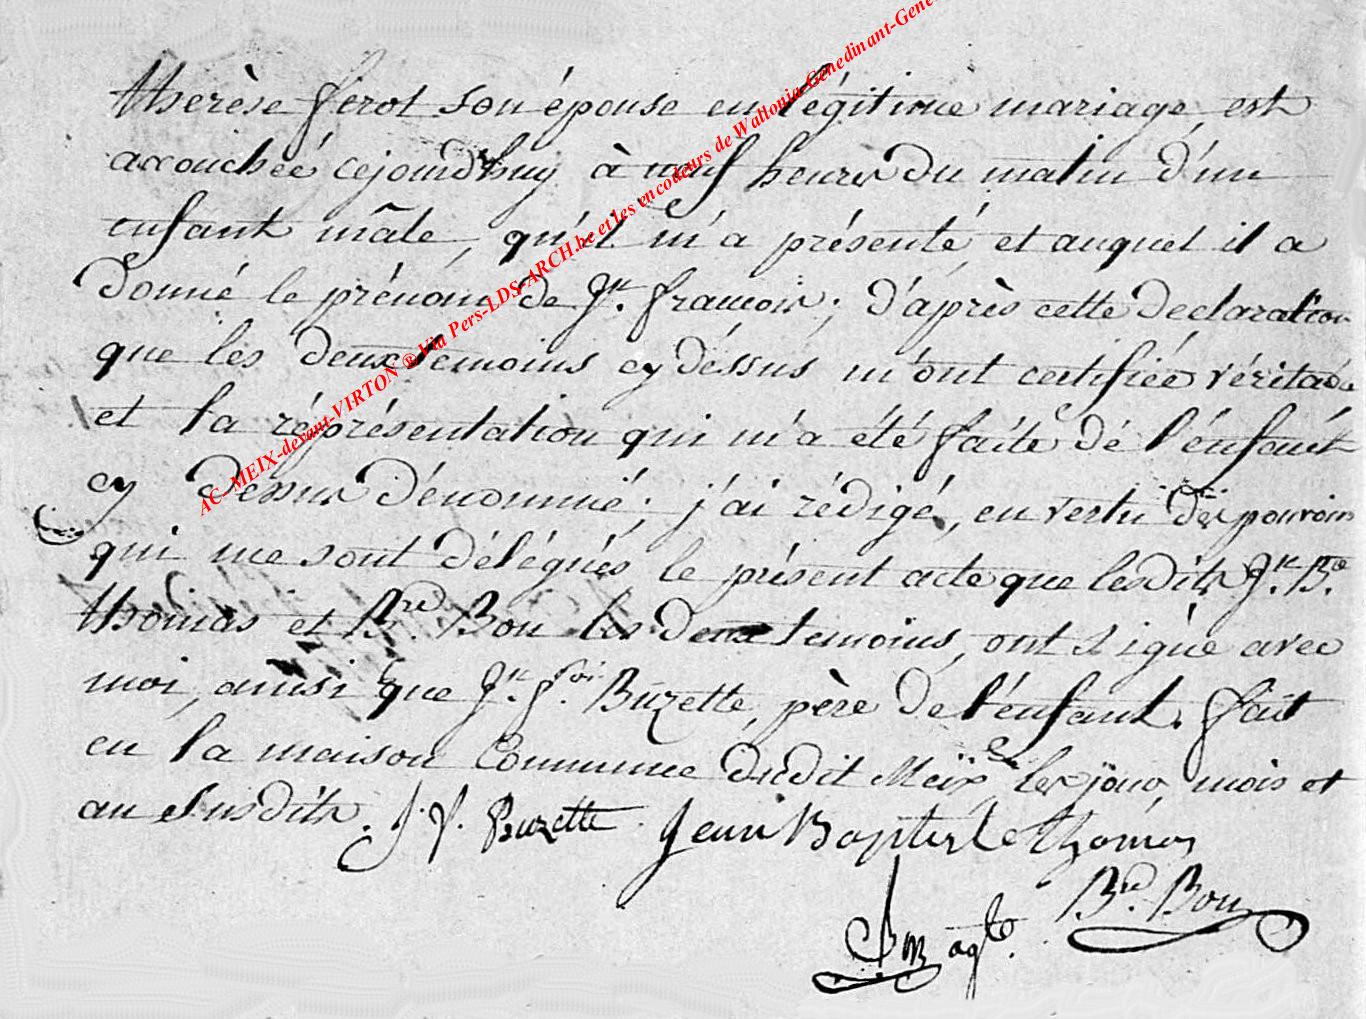 therèse ferot son épouse en légitime mariage, est
accouchée cejourd'huy à neuf heures du matin d'un
enfant mâle, qu'il m'a présenté, et auquel il a
donné le prénom de Jn. françois; d'après cette declaration
que les deux temoins cy dessus m'ont certifiée véritable
et la réprésentation qui m'a été faite dé l'énfant
cy dessus dénommé; j'ai rédigé, en vertu des pouvoirs
qui me sont délégués le présent acte que lesdits Jn. Bte.
thomas et Brd. Bon les deux temoins, ont signé avec
moi, ainsi que Jn. fois. Buzette, père de l'énfant. fait
en la maison Commune dudit Meïx les jour, mois et
an susdits.
J. f. Buzette Jean Baptiste thomas
Brd. Bon
agt.
AC-MEIX-devant-VIRTON ® Via Pers-LDS-ARCH.be et les encodeurs de Wallonia-Genedinant-Gene